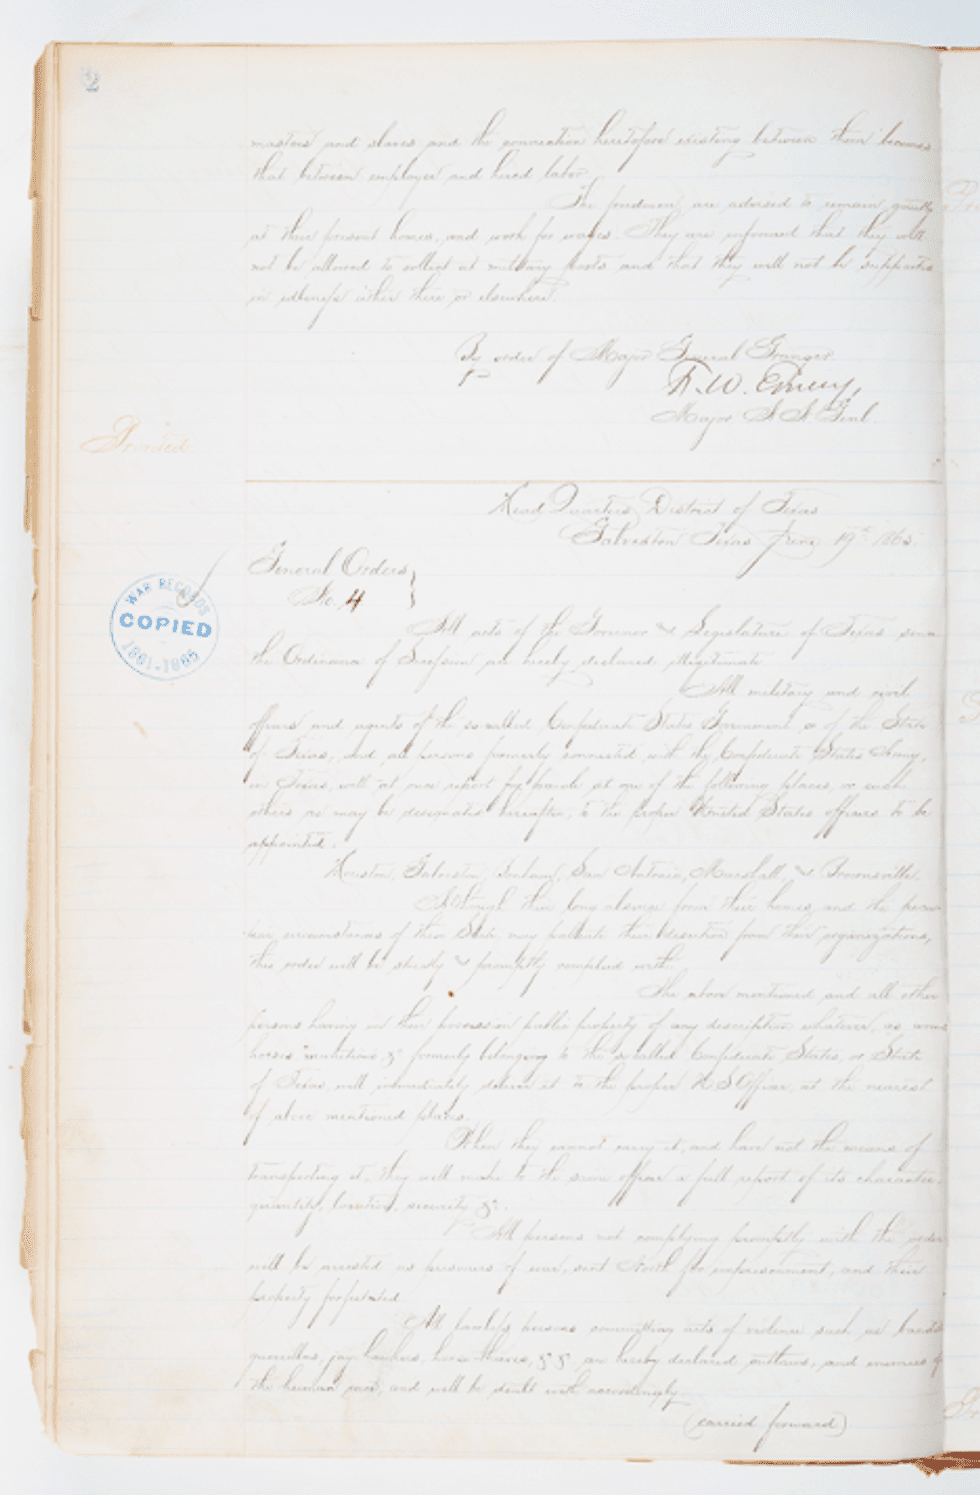 2
masters and slaves and the connection heretofore existing between them becomes
that between employer and hired labor.
The freedmen are advised to remain quietly
at their present homes, and work for wages. They are informed that they will
not be allowed to collect at military posts and that they will not be supported
in idleness either there or elsewhere.
By order of Major General Granger
F. W. Emery,
Major A. A. Genl.
Printed
Head Quarters District of Texas
Galveston Texas June 19th 1865.
General Orders
No. 4
WAR RECORDS
COPIED
1861-1865
All acts of the Governor & Legislature of Texas since
the Ordinance of Secession are hereby declared illegitimate
All military and civil
officers and agents of the so-called Confederate States Government, or of the State
of Texas, and all persons formerly connected with the Confederate States Army,
in Texas, will at once report for parole at one of the following places, or such
others as may be designated hereafter, to the proper United States officers to be
appointed.
Houston, Galveston, Bonham, San Antonio, Marshall, & Brownsville.
Although their long absence from their homes, and the
circumstances of their State may palliate their desertion from their organizations,
this order will be strictly & promptly complied with.
The above mentioned and all other
persons having in their possession public property of any description whatever, as arms
horses munitions, &c formerly belonging to the so called Confederate States, or State
of Texas will immediately deliver it to the proper U S Officer, at the nearest
of above mentioned places.
When they cannot carry it, and have not the means of
transporting it, they will make to the same officer a full report of its character,
quantity, location, security &c.
All persons not complying promptly with this order
will be arrested as prisoners of war, sent North for imprisonment, and their
property forfeited.
All lawless persons committing acts of violence such as
guerrillas, jay hawkers, horse thieves, &c &c are hereby declared outlaws, and enemies of
the human race, and will be dealt with accordingly.
(carried forward)